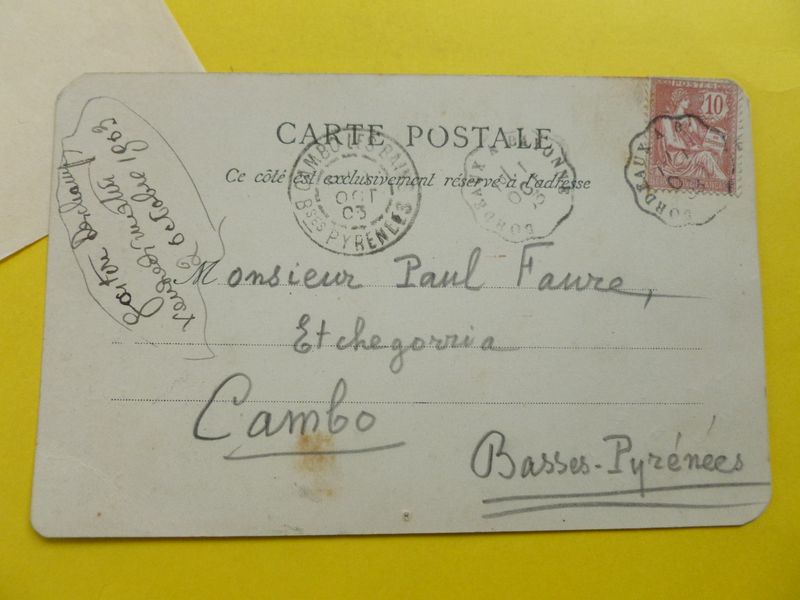 CARTE POSTALE
Ce côté est exclusivement réservé à l'adresse
POSTES
10
CAMBO-LES-BAINS
OCT
03
BSES PYRÉNÉES
BORDEAUX A
BORDEAUX A
Gaston
vendredi matin
2 octobre 1903
Monsieur Paul Faure,
Etchegorria
Cambo
Basses-Pyrénées